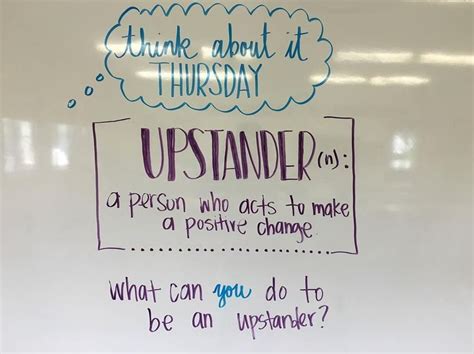 think about it
THURSDAY
UPSTANDER (n):
a person who acts to make
a positive change.
what can you do to
be an upstander?